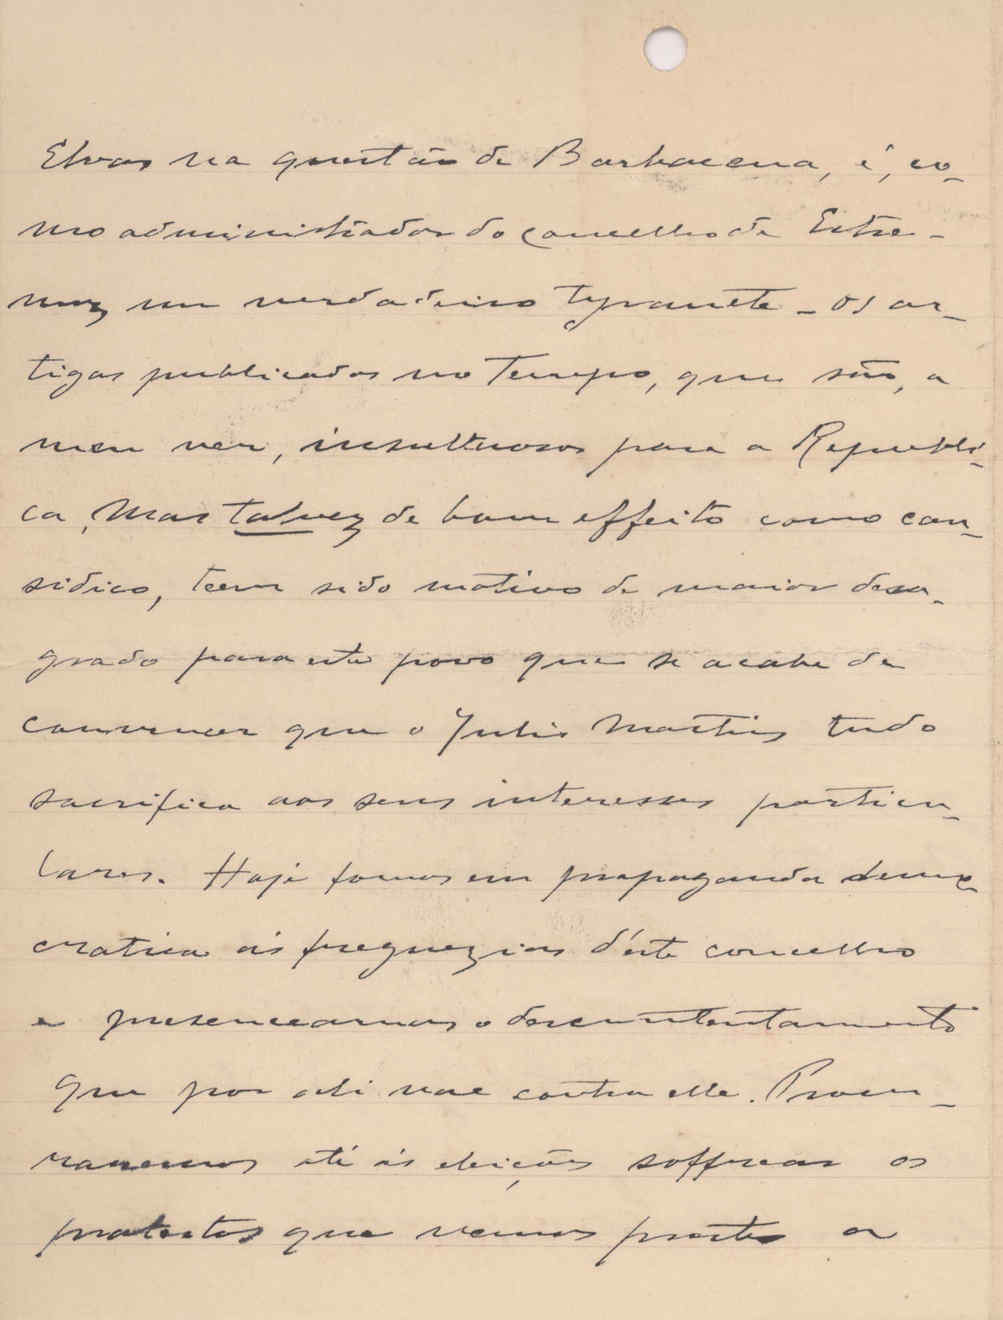 Elvas na questão de Barbacena, é, co-
mo administrador do concelho de Estre-
moz um verdadeiro tyranete - Os ar-
tigos publicados no Tempo, que são, a
meu ver, insultuosos para a Republi-
ca, mas talvez de bom effeito como cau-
sidico, teem sido motivo de maior desa-
grado para este povo que se acaba de
convencer que o Julio Martins tudo
sacrifica aos seus interesses particu-
lares. Hoje fomos em propaganda demo-
cratica ás freguezias d'éste concelho
e presenceamos o descontentamento
que por ali vae contra elle. Procu-
raremos até ás eleições soffrear os
protestos que vemos prestes a